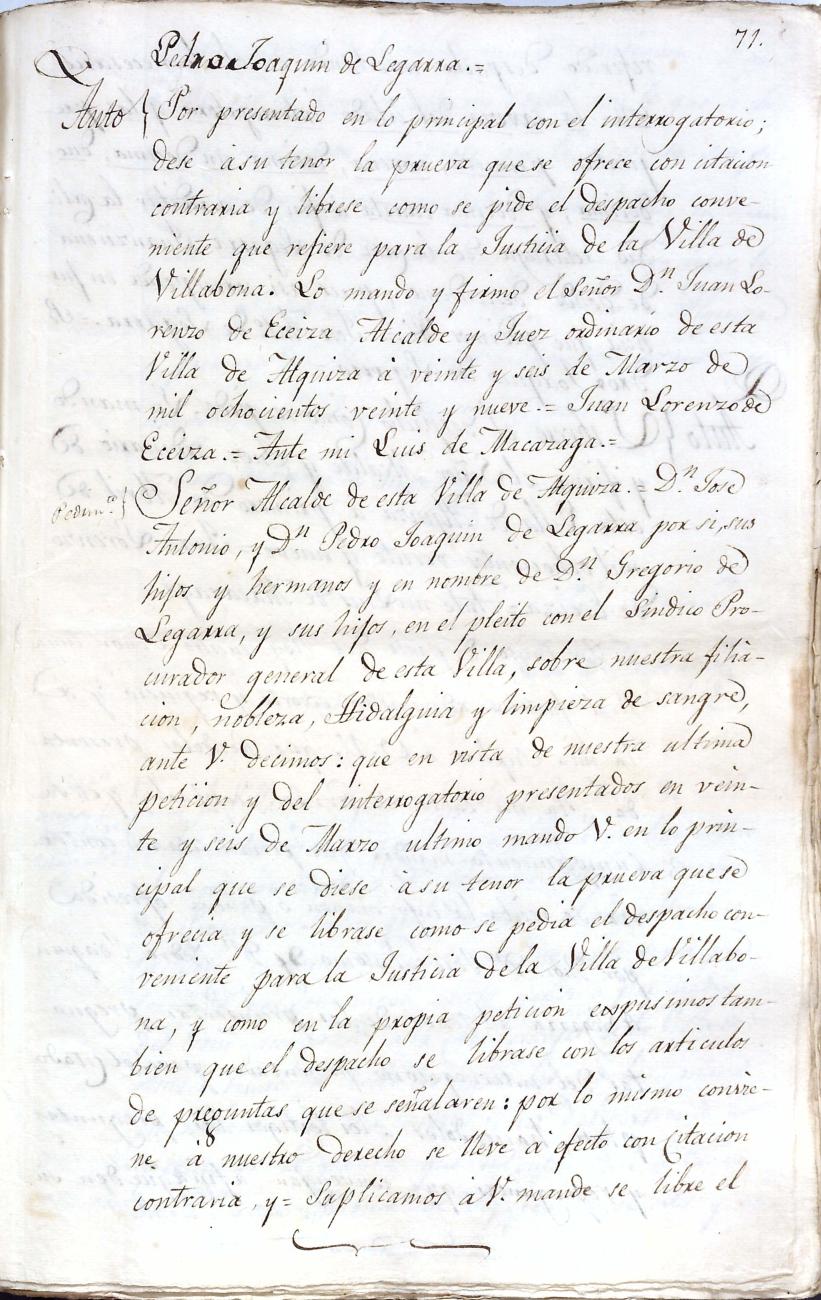 71.
Pedro Joaquin de Legarra.=
Auto } Por presentado en lo principal con el interrogatorio;
dese à su tenor la prueva que se ofrece con citacion
contraria y librese como se pide el despacho conve-
niente que refiere para la Justicia de la Villa de
Villabona. Lo mando y firmo el Señor D.n Juan Lo-
renzo de Eceiza Alcalde y Juez ordinario de esta
Villa de Alquiza à veinte y seis de Marzo de
mil ochocientos veinte y nueve.= Juan Lorenzo de
Eceiza.= Ante mi Luis de Macazaga.=
Pedim.to } Señor Alcalde de esta Villa de Alquiza.= D.n José
Antonio, y D.n Pedro Joaquin de Legarra por si, sus
hijos y hermanos y en nombre de D.n Gregorio de
Legarra, y sus hijos, en el pleito con el Sindico Pro-
curador general de esta Villa, sobre nuestra filia-
cion, nobleza, Hidalguia y limpieza de sangre,
ante V. decimos: que en vista de nuestra ultima
peticion y del interrogatorio presentados en vein-
te y seis de Marzo ultimo mando V. en lo prin-
cipal que se diese à su tenor la prueva que se
ofrecia y se librase como se pedia el despacho con-
veniente para la Justicia de la Villa de Villabo-
na, y como en la propia peticion expusimos tam-
bien que el despacho se librase con los articulos
de preguntas que se señalaren: por lo mismo convie-
ne à nuestro derecho se lleve à efecto con Citacion
contraria, y= Suplicamos à V. mande se libre el